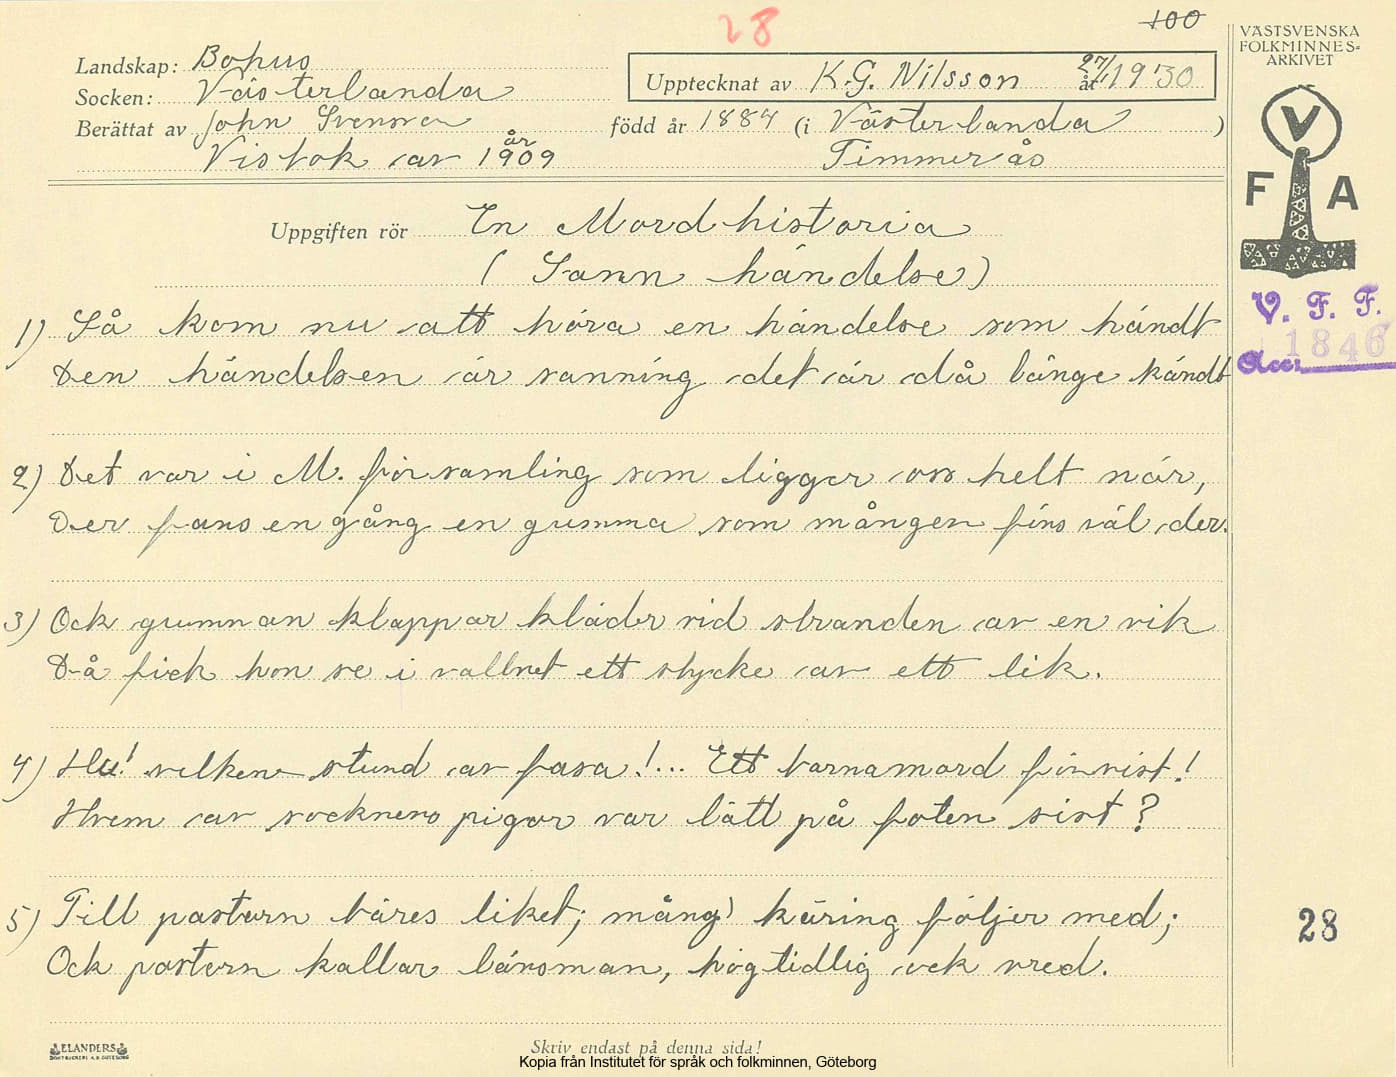 28
100
VÄSTSVENSKA
FOLKMINNES-
ARKIVET
Landskap: Bohus
Socken: Västerlanda
Upptecknat av K.G. Nilsson 27/1 år 1930
Berättat av John Svenson född år 1887 (i Västerlanda )
Visbok av 1909 år Timmerås
V
F A
Uppgiften rör En Mordhistoria
(Sann händelse)
V. F. F.
Acc. 1846
1) Så kom nu att höra en händelse som händt
Den händelsen är sanning det är då länge kändt
2) Det var i M. församling som ligger oss helt när,
Der fans en gång en gumma som mången fins väl der.
3) Ock gumman klappar kläder vid stranden av en vik
Då fick hon se i vattnet ett stycke av ett lik.
4) Hu! vilken stund av fasa!... Ett barnamord förvist!
Hvem av socknens pigor var lätt på foten sist?
5) Till pastorn bäres liket; mång' käring följer med;
Ock pastorn kallar länsman, högtidlig ock vred.
28
ELANDERS
BOKTRYCKERI A.B. GÖTEBORG
Skriv endast på denna sida!
Kopia från Institutet för språk och folkminnen, Göteborg